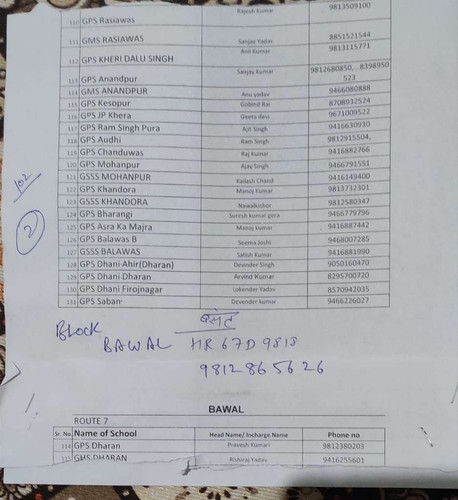 110 GPS Rasiawas Rajesh kumar 9813509100
111 GMS RASIAWAS Sanjay Yadav 8851521544
112 GPS KHERI DALU SINGH Anil Kumar 9813115771
113 GPS Anandpur Sanjay Kumar 9812680850, 8398950523
114 GMS ANANDPUR Anu yadav 9466080888
115 GPS Kesopur Gobind Rai 8708932524
116 GPS JP Khera Geeta devi 9671009522
117 GPS Ram Singh Pura Ajit Singh 9416630930
118 GPS Audhi Ram Singh 9812915504,
119 GPS Chanduwas Raj Kumar 9416882766
120 GPS Mohanpur Ajay Singh 9466791551
121 GSSS MOHANPUR Kailash Chand 9416149400
122 GPS Khandora Manoj kumar 9813732301
123 GSSS KHANDORA Nawalkishor 9812580347
124 GPS Bharangi Suresh kumar gera 9466779796
125 GPS Asra Ka Majra Manoj kumar 9416887442
126 GPS Balawas B Seema Joshi 9468007285
127 GSSS BALAWAS Satish Kumar 9416881990
128 GPS Dhani Ahir(Dharan) Devender Singh 9050160470
129 GPS Dhani Dharan Arvind Kumar 8295700720
130 GPS Dhani Firojnagar Lekender Yadav 8570942035
131 GPS Saban Devender kumar 9466226027
102
2
Block
BAWAL HR 67D 9813
9812865626
BAWAL
ROUTE 7
Sr. No. Name of School Head Name/ Incharge Name Phone no
114 GPS Dharan Pravesh Kumari 9812380203
115 GMS DHARAN Rishiraj Yadav 9416255601